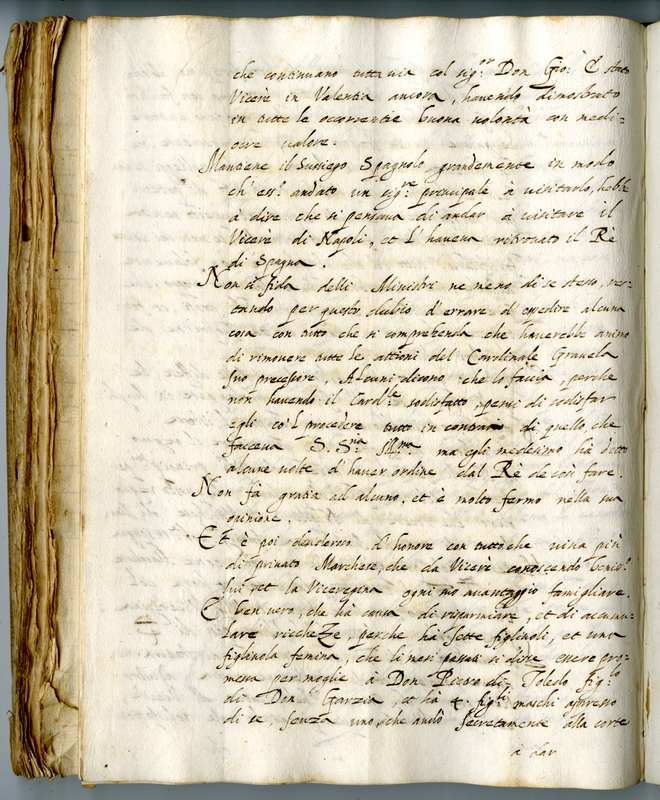 che continuano tuttavia col sig.or Don Gio: È stato
Vicerè in Valentia ancora, havendo dimostrato
in tutte le occorrentie buona volontà con medi=
ocre valore.
Mantiene il Sussiego Spagnolo grandemente in modo
ch'ess.o andato un sig.re principale à visitarlo, hebbe
à dire che si pensava di andar à visitare il
Vicerè di Napoli, et l'haveva ritrovato il Rè
di Spagna.
Non si fida delli Ministri ne meno di se stesso, res=
tando per questo dubio d'errare d'espedire alcuna
cosa con tutto che si comprehenda che haverebbe animo
di rimovere tutte le attioni del Cardinale Granvela
suo precessore, Alcuni dicono che lo faccia, perche
non havendo il Card.le sodisfatto, pensi di sodisfar
egli co'l procedere tutto in contrario di quello, che
faceva S. S.ria Ill.ma ma egli medesimo hà detto
alcune volte d'haver ordine dal Rè de così fare.
Non fà gratia ad alcuno, et è molto fermo nella sua
opinione.
Et è poi desideroso d'honore con tutto che viva più
di privato Marchese, che da Vicere conoscendo beniss.o
lui, et la Viceregina ogni suo avantaggio famigliare.
È ben vero, che hà causa di risparmiare, et di accumu=
lare ricchezze, perche hà sette figlioli, et una
figliola femina, che li mesi passati si disse essere pro=
messa per moglie à Don Pietro di Toledo fig.lo
di Don Garzia, et hà 4. fig.li maschi appresso
di se, senza uno, che andò secretamente alla corte
à dar